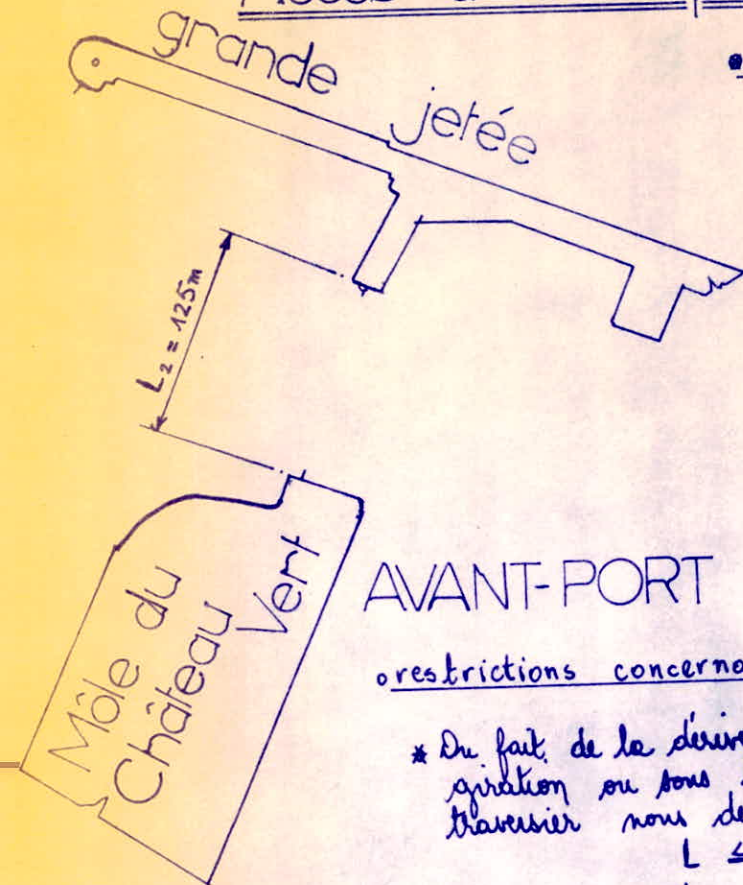 grande jetée
L₂ = 125m
Môle du
Château
Vert
AVANT-PORT
restrictions
* Du fait de la
giration ou sous
traversier nous
L ≤